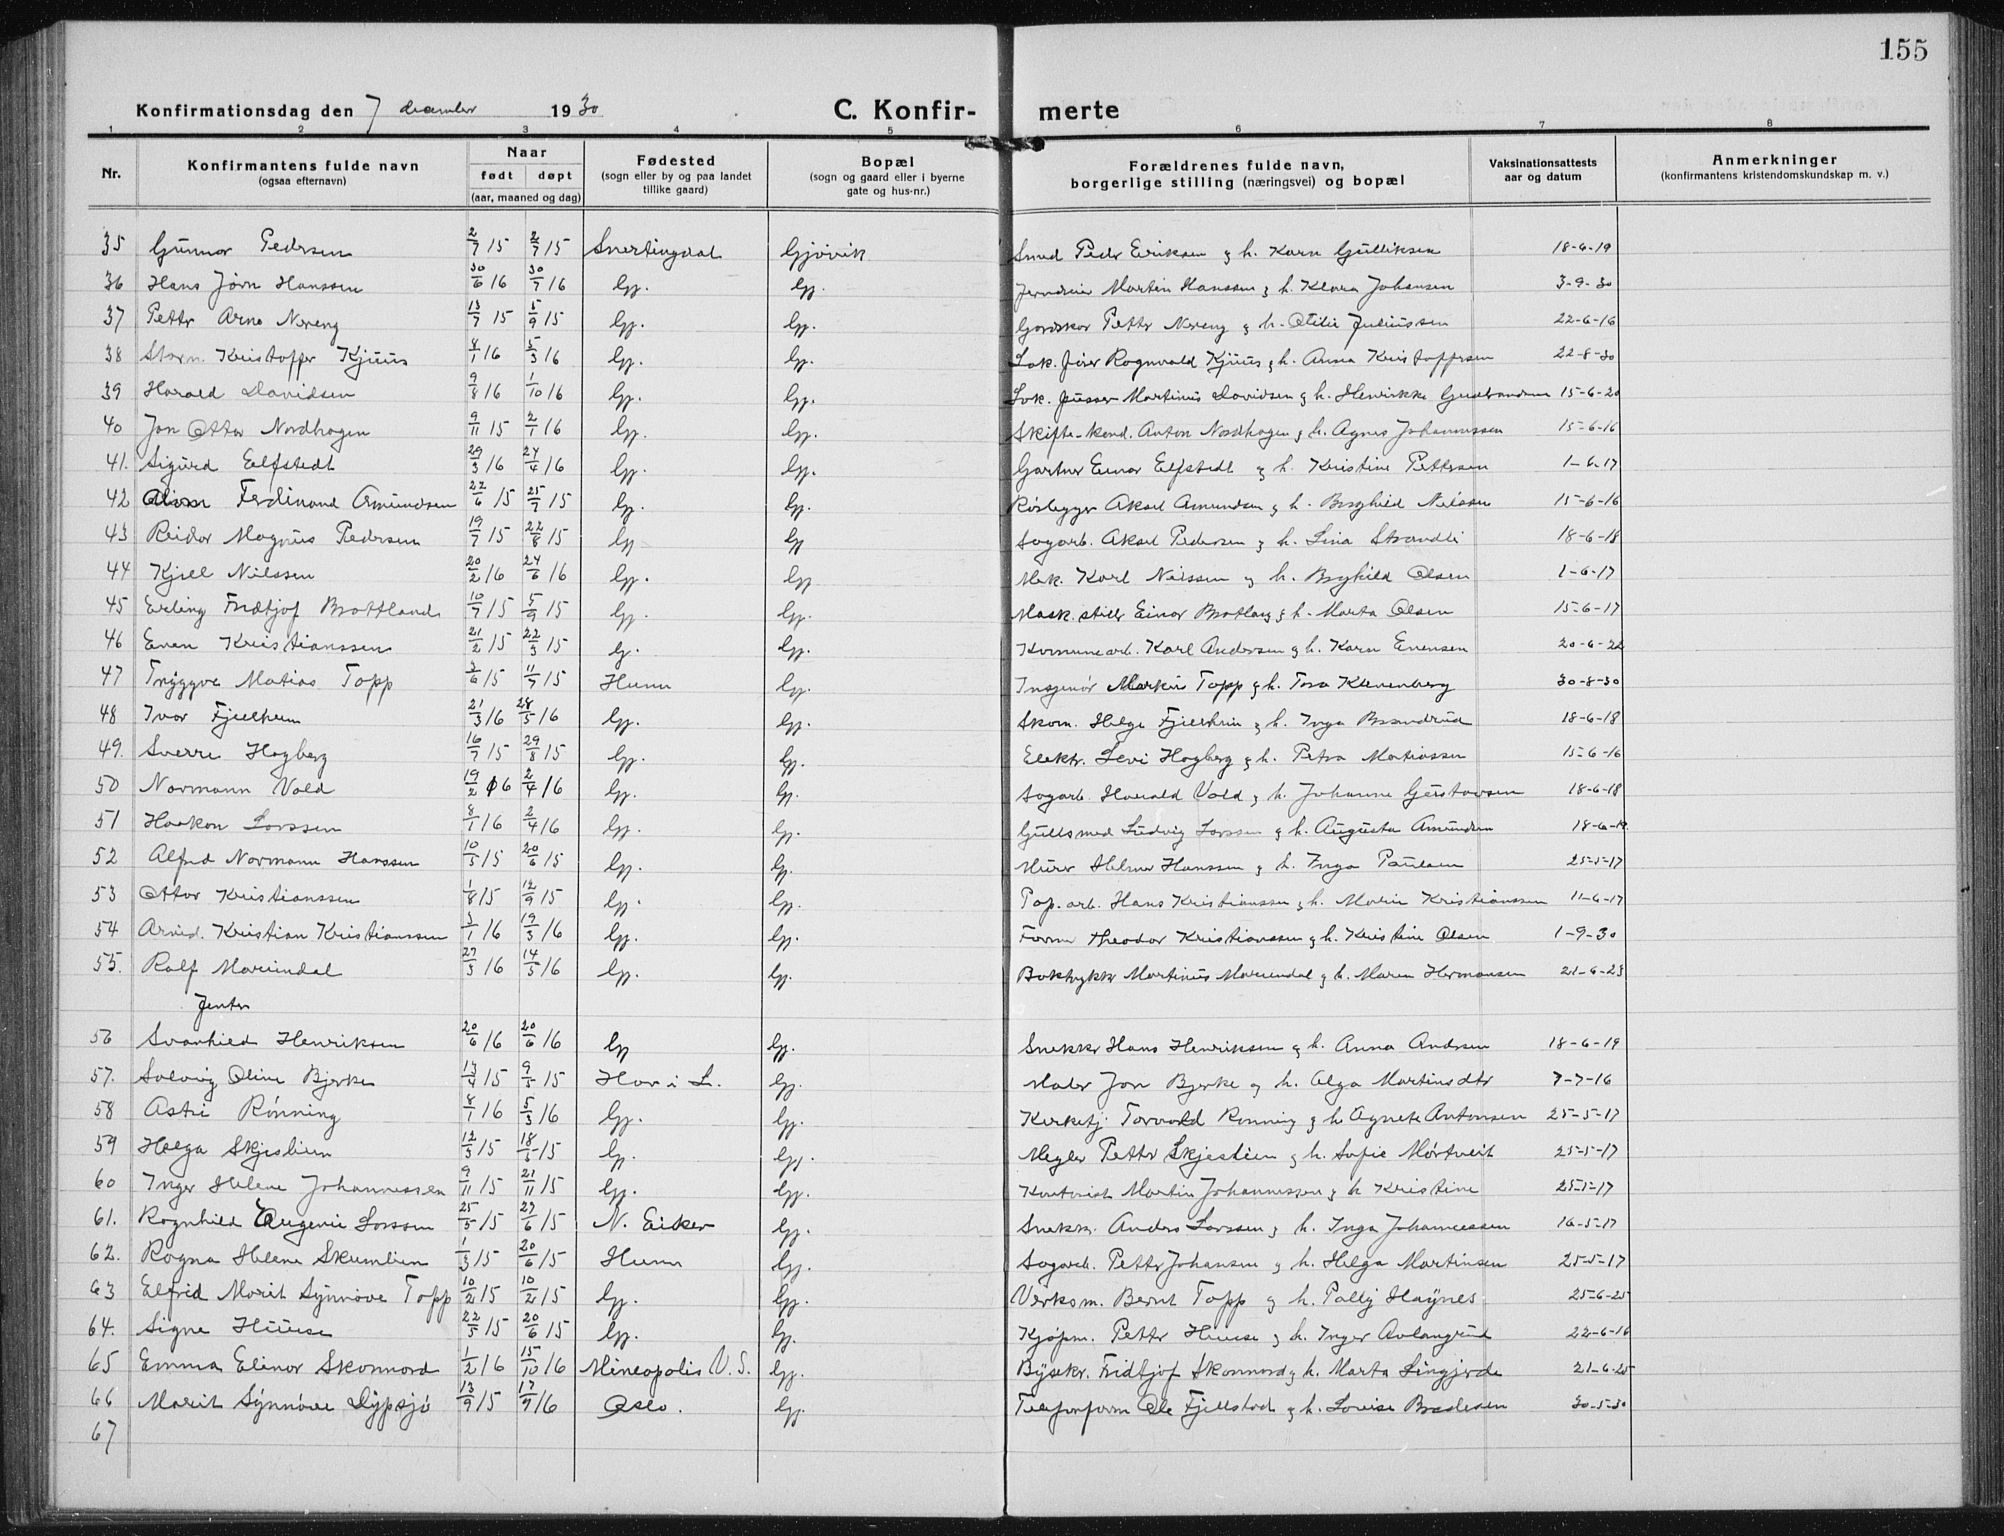 155
Konfirmationsdag den 7 december 1930 C. Konfir- merte
1 2 3 4 5 6 7 8
Nr. Konfirmantens fulde navn (ogsaa efternavn) Naar født døpt (aar, maaned og dag) Fødested (sogn eller by og paa landet tillike gaard) Bopæl (sogn og gaard eller i byerne gate og hus-nr.) Forældrenes fulde navn, borgerlige stilling (næringsvei) og bopæl Vaksinationsattests aar og datum Anmerkninger (konfirmantens kristendomskundskap m. v.)
35 Gunnar Pedersen 2/7 15 2/7 15 Snertingdal Gjøvik Smed Peder Eriksen & h. Karen Gulliksen 18-6-19
36 Hans Jørn Hanssen 30/6 16 30/7 16 Gj. Gj. Jerndreier Martin Hanssen & h. Klara Johansen 3-9-30
37 Petter Arne Nereng 13/7 15 5/9 15 Gj. Gj. Petter Nereng & h. Otilie Juliussen 22-6-16
38 Kristoffer Kjuus 8/1 16 5/3 16 Gj. Gj. Lok. fører Ragnvald Kjuus & h. Anna Kristoffersen 22-8-30
39 Harald Davidsen 9/8 16 1/10 16 Gj. Gj. Lok. pusser Martinus Davidsen & h. Henrikke Gudbrandsen 15-6-20
40 Jon Ottar Nordhagen 9/11 15 2/1 16 Gj. Gj. Skifte-kond. Anton Nordhagen & h. Agnes Johannessen 15-6-16
41. Sigurd Elfstedt 29/3 16 24/4 16 Gj. Gj. Gartner Einar Elfstedt & h. Kristine Pettersen 1-6-17
42 Ferdinand Amundsen 22/6 15 25/7 15 Gj. Gj. Rørlegger Aksel Amundsen & h. Borghild Nielsen 15-6-16
43 Reidar Magnus Pedersen 19/7 15 22/8 15 Gj Gj Sagarb. Aksel Pedersen & h. Lina Strandli 18-6-18
44 Kjell Nilssen 20/2 16 24/6 16 Gj. Gj Mek. Karl Nilssen & h. Borghild Olsen 1-6-17
45 Erling Fridtjof Brottland 10/7 15 5/9 15 Gj. Gj. Mask. stiller Einar Brotlang & h. Marta Olsen 15-6-17
46 Even Kristianssen 21/2 15 22/3 15 Gj. Gj. Kommunearb. Karl Andersen & h. Karen Evensen 20-6-22
47 Tryggve Matias Topp 2/6 15 11/7 15 Hunn Gj. Ingeniør Markus Topp & h. Tora Klevenberg 30-8-30
48 Ivar Fjellheim 21/3 16 28/5 16 Gj. Gj. Skom. Helge Fjellheim & h. Inga Brandrud 18-6-18
49. Sverre Hagberg 16/7 15 29/8 15 Gj. Gj. Elektr. Levi Hagberg & h. Petra Matiassen 15-6-16
50 Normann Vold 19/2 16 2/4 16 Gj. Gj. Sagarb. Harald Vold & h. Johanne Gustavsen 18-6-18
51 Haakon Larssen 8/1 16 2/4 16 Gj. Gj. Gullsmed Ludvig Larssen & h. Augusta Amundsen 18-6-19
52 Alfred Normann Hanssen 10/5 15 20/6 15 Gj. Gj. Murer Helmer Hanssen & h. Inga Paulsen 25-5-17
53 Ottar Kristianssen 1/8 15 12/9 15 Gj. Gj. Pap. arb. Hans Kristianssen & h. Marie Kristianssen 11-6-17
54 Arvid. Kristian Kristianssen 3/1 16 19/3 16 Gj. Gj. Former Theodor Kristianssen & h. Kristine Olsen 1-9-30
55. Ralf Mariendal 27/3 16 14/5 16 Gj. Gj. Boktrykker Martinus Mariendal & h. Maren Hermansen 21-6-23
Jenter
56 Svanhild Henriksen 20/6 16 20/6 16 Gj Gj. Snekker Hans Henriksen & h. Anna Andersen 18-6-19
57. Solveig Oline Bjerke 13/4 15 9/5 15 Hov i L. Gj. Maler Jon Bjerke & h. Olga Martinsdtr 7-7-16
58 Astri Rønning 8/1 16 5/3 16 Gj. Gj. Kirketj. Torvald Rønning & h Agnete Antonsen 25-5-17
59 Helga Skjeslien 12/3 15 18/5 15 Gj. Gj. Megler Petter Skjeslien & h. Sofie Mørtveit 25-5-17
60 Inger Helene Johannessen 9/11 15 21/11 15 Gj. Gj. Kontorist Martin Johannessen & h Kristine 25-5-17
61. Ragnhild Eugenie Larssen 25/5 15 27/6 15 N. Eiker Gj. Snekker Anders Larssen & h. Inga Johannessen 16-5-17
62. Ragna Helene Skumlien 1/3 15 20/6 15 Hunn Gj. Sagarb. Petter Johansen & h. Helga Martinsen 25-5-17
63 Elfrid Marit Synnøve Topp 10/2 15 10/2 15 Gj. Gj. Verksm. Bernt Topp & h. Polly Haynes 25-6-25
64. Signe Huuse 22/5 15 20/6 15 Gj. Gj. Kjøpm. Petter Huuse & h. Inger Avlangrud 22-6-16
65 Emma Elinor Skonnord 1/2 16 15/10 16 Mineopolis U.S. Gj. Bysekr. Fridtjof Skonnord & h. Marta Lingjerde 21-6-25
66 Marit Synnøve Dypsjø 13/9 15 17/9 16 Oslo. Gj. Telefonform Ole Fjellstad & h. Lovise Bredesen 30-5-30
67